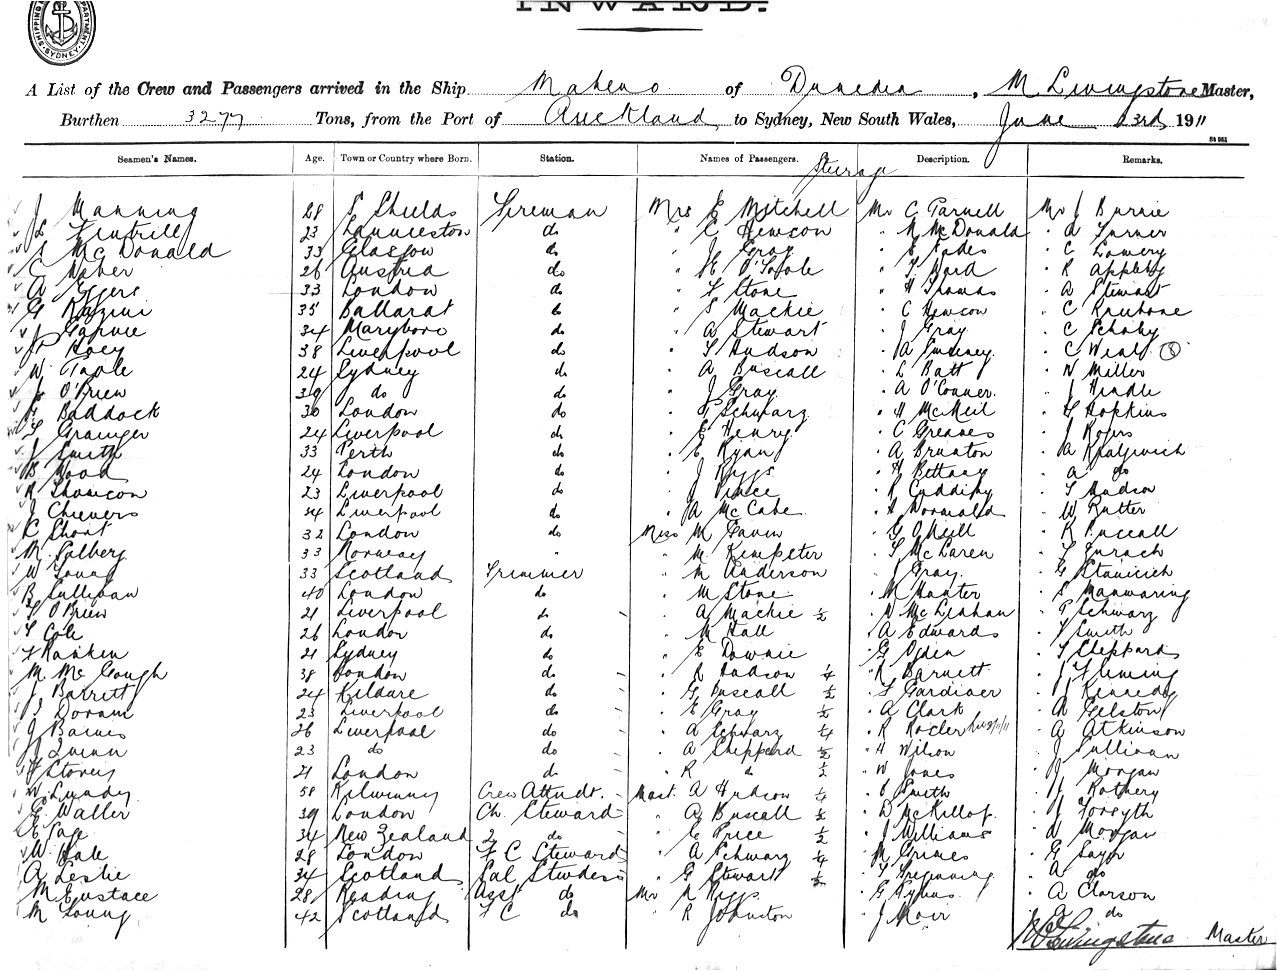 INWARD.
SHIPPING DEPARTMENT SYDNEY
A List of the Crew and Passengers arrived in the Ship Maheno of Dunedin, M Livingstone Master,
Burthen 3277 Tons, from the Port of Auckland to Sydney, New South Wales, June 23rd 1911
Seamen's Names. Age. Town or Country where Born. Station. Names of Passengers. Description. Remarks.
Steerage
J Manning 28 S Shields Fireman Mrs E Mitchell Mr C Parnell Mr J Burnie
23 Launceston do " C Hewson " McDonald " Turner
McDonald 33 Glasgow do " J Gray " E Eades " C Lowery
C Maher 26 Austria do " H O'Toole " F Ward " R Appleby
A Eggers 33 London do " F Stone " H Thomas " A Stewart
G 35 Ballarat do " S Mackie " C Hewson " C
34 Maryboro do " A Stewart " J Gray " C
Hoey 38 Liverpool do " T Hudson " A Sweeney " C
W Taple 24 Sydney do " A Buscall " L Batt " W Miller
J O'Brien 39 do do " J Gray " A O'Conner " J Hindle
Baddock 30 London do " P Schwarz " H McNeil " G Hopkins
Grainger 24 Liverpool do " E Henry " C Greaves " J Rogers
J Smith 33 Perth do " E Ryan " A Brunton " A
Hood 24 London do " J Riggs " H Bettany " A do
R Thomson 23 Liverpool do " J Price " R Cuddihy " T Hudson
J Cheevers 24 Liverpool do " A McCabe " Dormald " W Rutter
C Short 32 London do Miss M Gavin " G O'Neill " R Buscall
M Solberg 33 Norway " " M Kempster " S McLaren "
W Young 33 Scotland Trimmer " M Anderson " J Gray " G
B Sullivan 40 London do " M Stone " M Hunter " S Manwaring
O'Brien 21 Liverpool do " A Mackie ½ " McLenahan " P Schwarz
T Cole 26 London do " M Hall " A Edwards " Smith
F Rankin 21 Sydney do " E Downie " G Ogden " Sheppard
M McGough 38 London do " R Hudson ¼ " R Barnett " J Fleming
J Barrett 24 Kildare do " G Buscall ½ " F Gardiner " Kennedy
J Doram 23 Liverpool do " E Gray ½ " A Clark " A Gelston
J Barnes 26 Liverpool do " A Schwarz ¼ " R " G Atkinson
J Quinn 23 do do " A Sheppard ½ " H Wilson " J Sullivan
Storey 21 London do " R do ½ " W Jones " J Morgan
W Lundy 58 Kilwinny Crew Attndt. Mast. A Hudson ¼ " C Smith " Rothery
E Waller 39 London Ch. Steward " G Buscall ½ " D McKillop " Forsyth
34 New Zealand 2 do " C Price ½ " J Williams " Morgan
W Hale 28 London F C Steward " A Schwarz ¼ " M Grimes " G Sayer
A Leslie 34 Scotland Sal Stwdess " G Stewart ½ " " A do
M Eustace 28 Reading Asst do Mr R Riggs " G " A Clarson
M Young 42 Scotland F C do " R Johnston " J Moir " A do
Livingstone Master